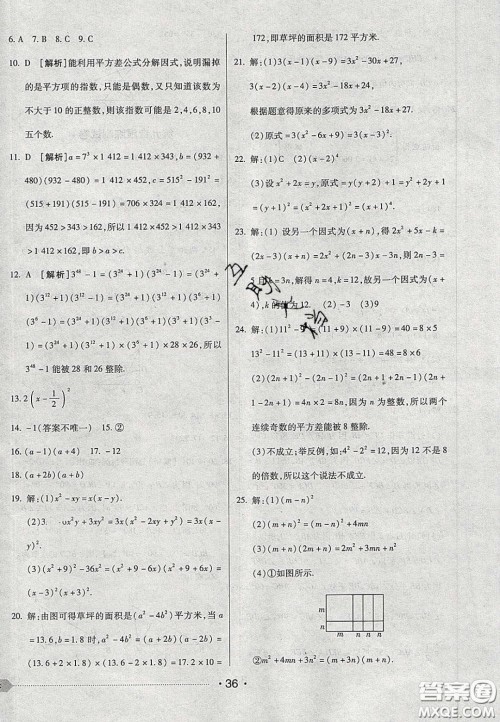 6. A  7. B  8. C  9. C
10. D 【解析】能利用平方差公式分解因式,说明漏掉
的是平方项的指数,只能是偶数,又只知道该数为
不大于 10 的正整数,则该指数可能是 2,4,6,8,10
五个数.
11. D 【解析】a=7³×1 412=343×1 412,b=(932+
480)(932-480)=1 412×452,c=515²-191²=
(515+191)(515-191)=706×324=1 412×162,
∵452>343>162,所以 1 412×452>343×
1 412>1 412×162,即 b>a>c.
3⁴⁸-1 能被 28 和 26 整除.
13. 2(x-1/2)²
14. -1(答案不唯一)  15. ②
16. (a-1)(a+4)  17. -12
18. (a+2b)(a+b)
19. 解:(1)x²-xy=x(x-y).
y).
(3)(x²+9)²-36x²=(x²+9+6x)(x²+9-6x)=
(x-3)²(x+3)².
20. 解:由图可得草坪的面积是(a²-4b²)平方米,当
a=13.6,b=1.8 时,a²-4b²=(a+2b)(a-2b)=
(13.6+2×1.8)×(13.6-2×1.8)=17.2×10=
172,即草坪的面积是 172 平方米.
21. 解:(1)3(x-1)(x-9)=3x²-30x+27,
3(x-2)(x-4)=3x²-18x+24,
根据题意得原来的多项式为 3x²-18x+27.
(2)原式=3(x²-6x+9)=3(x-3)².
22. 解:(1)C  (2)(x-2)⁴
(3)设 x²+2x=y,原式=y(y+2)+1=y²+2y+
1=(y+1)²=(x²+2x+1)²=(x+1)⁴.
23. 解:(1)设另一个因式为(x+n),得 2x²+5x-
4),k的值为 12  (2)-3  (3)9
24. 解:(1)11²-9²=(11+9)×(11-9)=40=8×5
13²-11²=(13+11)×(13-11)=48=8×6
(2)(2n+1)²-(2n-1)²=(2n+1+2n-1)(2n+
1-2n+1)=2×4n=8n,∵n 为整数,所以两个
连续奇数的平方差能被 8 整除.
(3)不成立;举反例,如:4²-2²=12,12 不是 8
的倍数,所以这个说法不成立.
25. 解:(1)(m-n)²
(2)(m+n)²=(m-n)²+4mn
(3)(m+n)(2m+n)=2m²+3mn+n²
(4)①如图所示.
m
n
m n n n
②m²+4mn+3n²=(m+n)(m+3n)
· 36 ·
答案圈
MXQE.COM